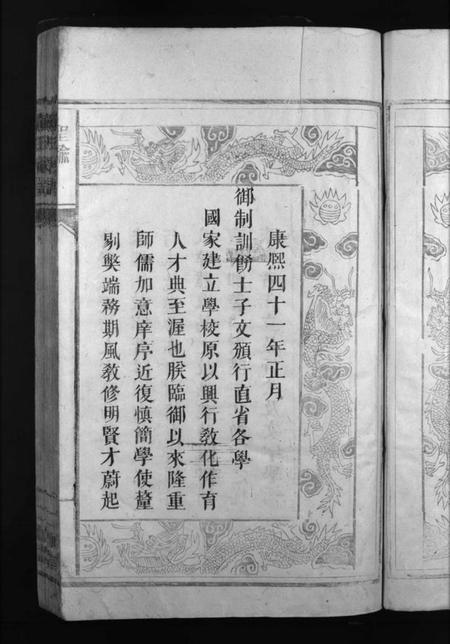 康熙四十一年正月
御制訓飭士子文頒行直省各學
國家建立學校原以興行教化作育
人才典至渥也朕臨御以來隆重
師儒加意庠序近復慎簡學使釐
剔獘端務期風教修明賢才蔚起
聖諭